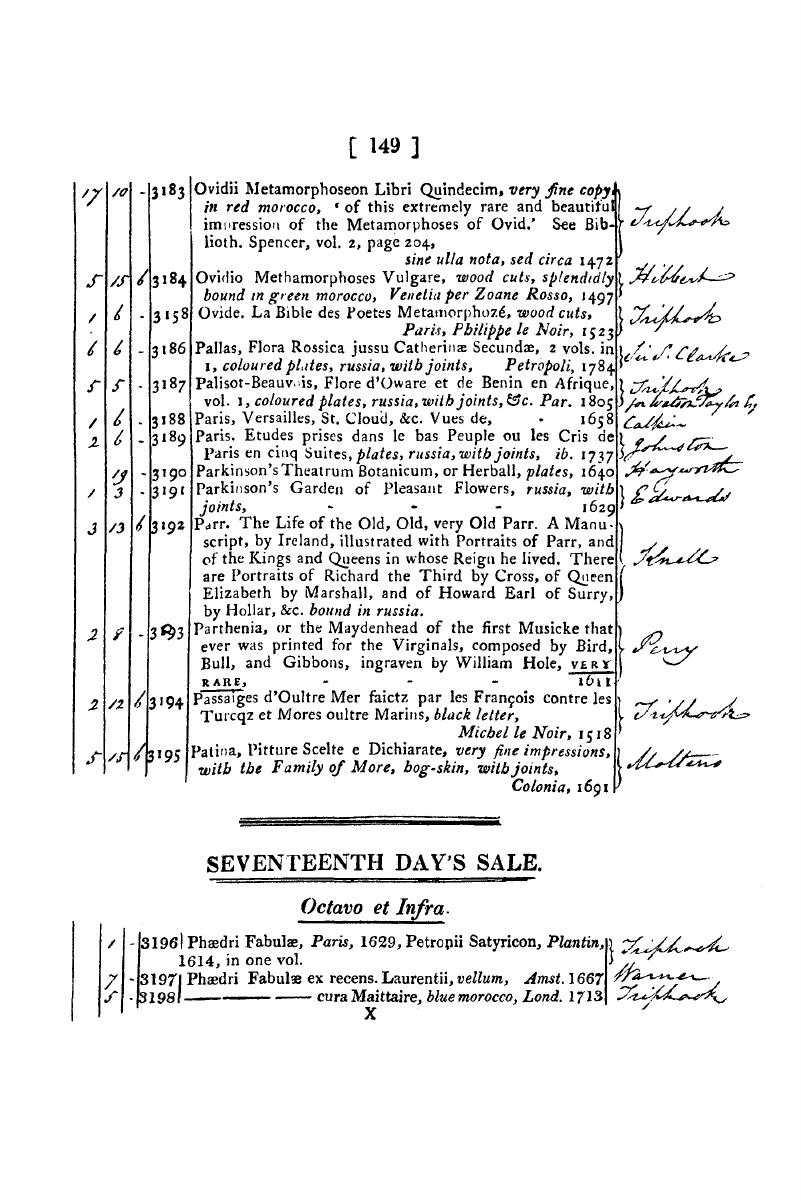 [ 149 ]
17 10 - 3183 Ovidii Metamorphoseon Libri Quindecim, very fine copy
in red morocco, ‘ of this extremely rare and beautiful
impression of the Metamorphoses of Ovid.’ See Bib- Triphook
lioth. Spencer, vol. 2, page 204,
sine ulla nota, sed circa 1472
5 15 6 3184 Ovidio Methamorphoses Vulgare, wood cuts, splendidly Hibbert
bound in green morocco, Venetia per Zoane Rosso, 1497
1 6 - 3158 Ovide. La Bible des Poetes Metamorphozé, wood cuts, Triphook
Paris, Philippe le Noir, 1523
6 6 - 3186 Pallas, Flora Rossica jussu Catherinæ Secundæ, 2 vols. in Sir S. Clarke
1, coloured plates, russia, with joints, Petropoli, 1784
5 5 - 3187 Palisot-Beauvois, Flore d'Oware et de Benin en Afrique, Triphook
vol. 1, coloured plates, russia, with joints, &c. Par. 1805 for Watson Taylor
1 6 - 3188 Paris, Versailles, St. Cloud, &c. Vues de, - 1658 Calkin
2 6 - 3189 Paris. Etudes prises dans le bas Peuple ou les Cris de Johnston
Paris en cinq Suites, plates, russia, with joints, ib. 1737
19 - 3190 Parkinson's Theatrum Botanicum, or Herball, plates, 1640 Hayworth
1 3 - 3191 Parkinson's Garden of Pleasant Flowers, russia, with Edwards
joints, - - - 1629
3 13 6 3192 Parr. The Life of the Old, Old, very Old Parr. A Manu-
script, by Ireland, illustrated with Portraits of Parr, and
of the Kings and Queens in whose Reign he lived. There Knell
are Portraits of Richard the Third by Cross, of Queen
Elizabeth by Marshall, and of Howard Earl of Surry,
by Hollar, &c. bound in russia.
2 8 - 3193 Parthenia, or the Maydenhead of the first Musicke that
ever was printed for the Virginals, composed by Bird, Perry
Bull, and Gibbons, ingraven by William Hole, VERY
RARE, - - - 1611
2 12 6 3194 Passaiges d'Oultre Mer faictz par les François contre les
Turcqz et Mores oultre Marins, black letter, Triphook
Michel le Noir, 1518
5 15 6 3195 Patina, Pitture Scelte e Dichiarate, very fine impressions,
with the Family of More, hog-skin, with joints, Molteno
Colonia, 1691
SEVENTEENTH DAY'S SALE.
Octavo et Infra.
1 - 3196 Phædri Fabulæ, Paris, 1629, Petropii Satyricon, Plantin, Triphook
1614, in one vol.
7 - 3197 Phædri Fabulæ ex recens. Laurentii, vellum, Amst. 1667 Warner
5 - 3198 ——— —— cura Maittaire, blue morocco, Lond. 1713 Triphook
X